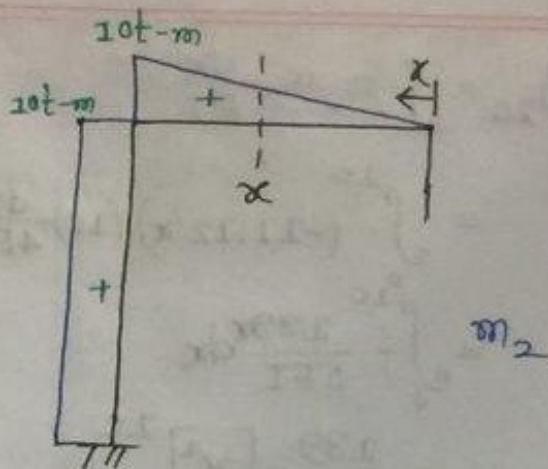 10t-m
10t-m
+
x
x
+
m2